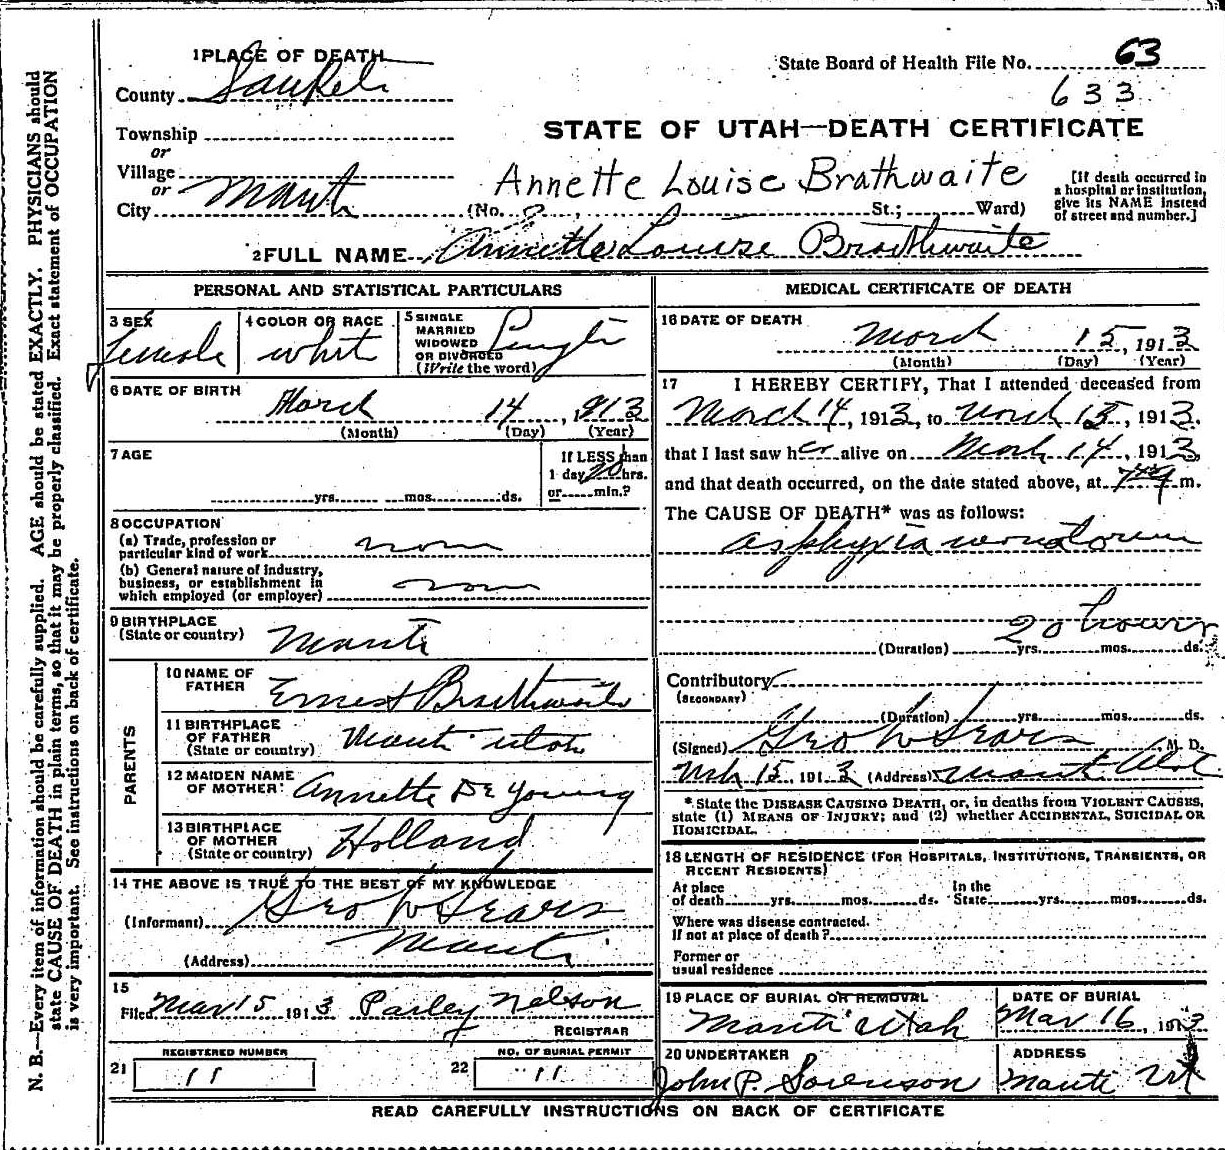 1 PLACE OF DEATH
County Sanpete
Township
or
Village
or
City Manti
State Board of Health File No. 63
633
STATE OF UTAH—DEATH CERTIFICATE
Annette Louise Brathwaite
(No. , St.; Ward)
[If death occurred in
a hospital or institution,
give its NAME instead
of street and number.]
2 FULL NAME Annette Louise Braithwaite
PERSONAL AND STATISTICAL PARTICULARS
3 SEX
Female
4 COLOR OR RACE
whit
5 SINGLE
MARRIED
WIDOWED
OR DIVORCED
(Write the word)
Single
6 DATE OF BIRTH
March 14, 1913
(Month) (Day) (Year)
7 AGE
yrs. mos. ds.
If LESS than
1 day 20 hrs.
or min.?
8 OCCUPATION
(a) Trade, profession or
particular kind of work non
(b) General nature of industry,
business, or establishment in
which employed (or employer) non
9 BIRTHPLACE
(State or country) Manti
PARENTS
10 NAME OF
FATHER Ernest Braithwaite
11 BIRTHPLACE
OF FATHER
(State or country) Manti utah
12 MAIDEN NAME
OF MOTHER Annette De Young
13 BIRTHPLACE
OF MOTHER
(State or country) Holland
14 THE ABOVE IS TRUE TO THE BEST OF MY KNOWLEDGE
(Informant) Geo W Sears
(Address) Manti
15
Filed Mar 15 1913 Parley Nelson
REGISTRAR
REGISTERED NUMBER
21 11
NO. OF BURIAL PERMIT
22 11
MEDICAL CERTIFICATE OF DEATH
16 DATE OF DEATH
March 15, 1913
(Month) (Day) (Year)
17 I HEREBY CERTIFY, That I attended deceased from
March 14, 1913, to March 15, 1913.
that I last saw her alive on March 14, 1913,
and that death occurred, on the date stated above, at m.
The CAUSE OF DEATH* was as follows:
asphyxia
20 hours
(Duration) yrs. mos. ds.
Contributory
(SECONDARY)
(Duration) yrs. mos. ds.
(Signed) Geo W Sears, M. D.
Mch 15, 1913 (Address) Manti
* State the DISEASE CAUSING DEATH, or, in deaths from VIOLENT CAUSES,
state (1) MEANS OF INJURY; and (2) whether ACCIDENTAL, SUICIDAL OR
HOMICIDAL.
18 LENGTH OF RESIDENCE (FOR HOSPITALS, INSTITUTIONS, TRANSIENTS, OR
RECENT RESIDENTS)
At place
of death yrs. mos. ds.
In the
State yrs. mos. ds.
Where was disease contracted.
If not at place of death?
Former or
usual residence
19 PLACE OF BURIAL OR REMOVAL
Manti Utah
DATE OF BURIAL
Mar 16, 1913
20 UNDERTAKER
John P. Sorenson
ADDRESS
Manti Ut
READ CAREFULLY INSTRUCTIONS ON BACK OF CERTIFICATE
N. B.—Every item of information should be carefully supplied. AGE should be stated EXACTLY. PHYSICIANS should
state CAUSE OF DEATH in plain terms, so that it may be properly classified. Exact statement of OCCUPATION
is very important. See instructions on back of certificate.